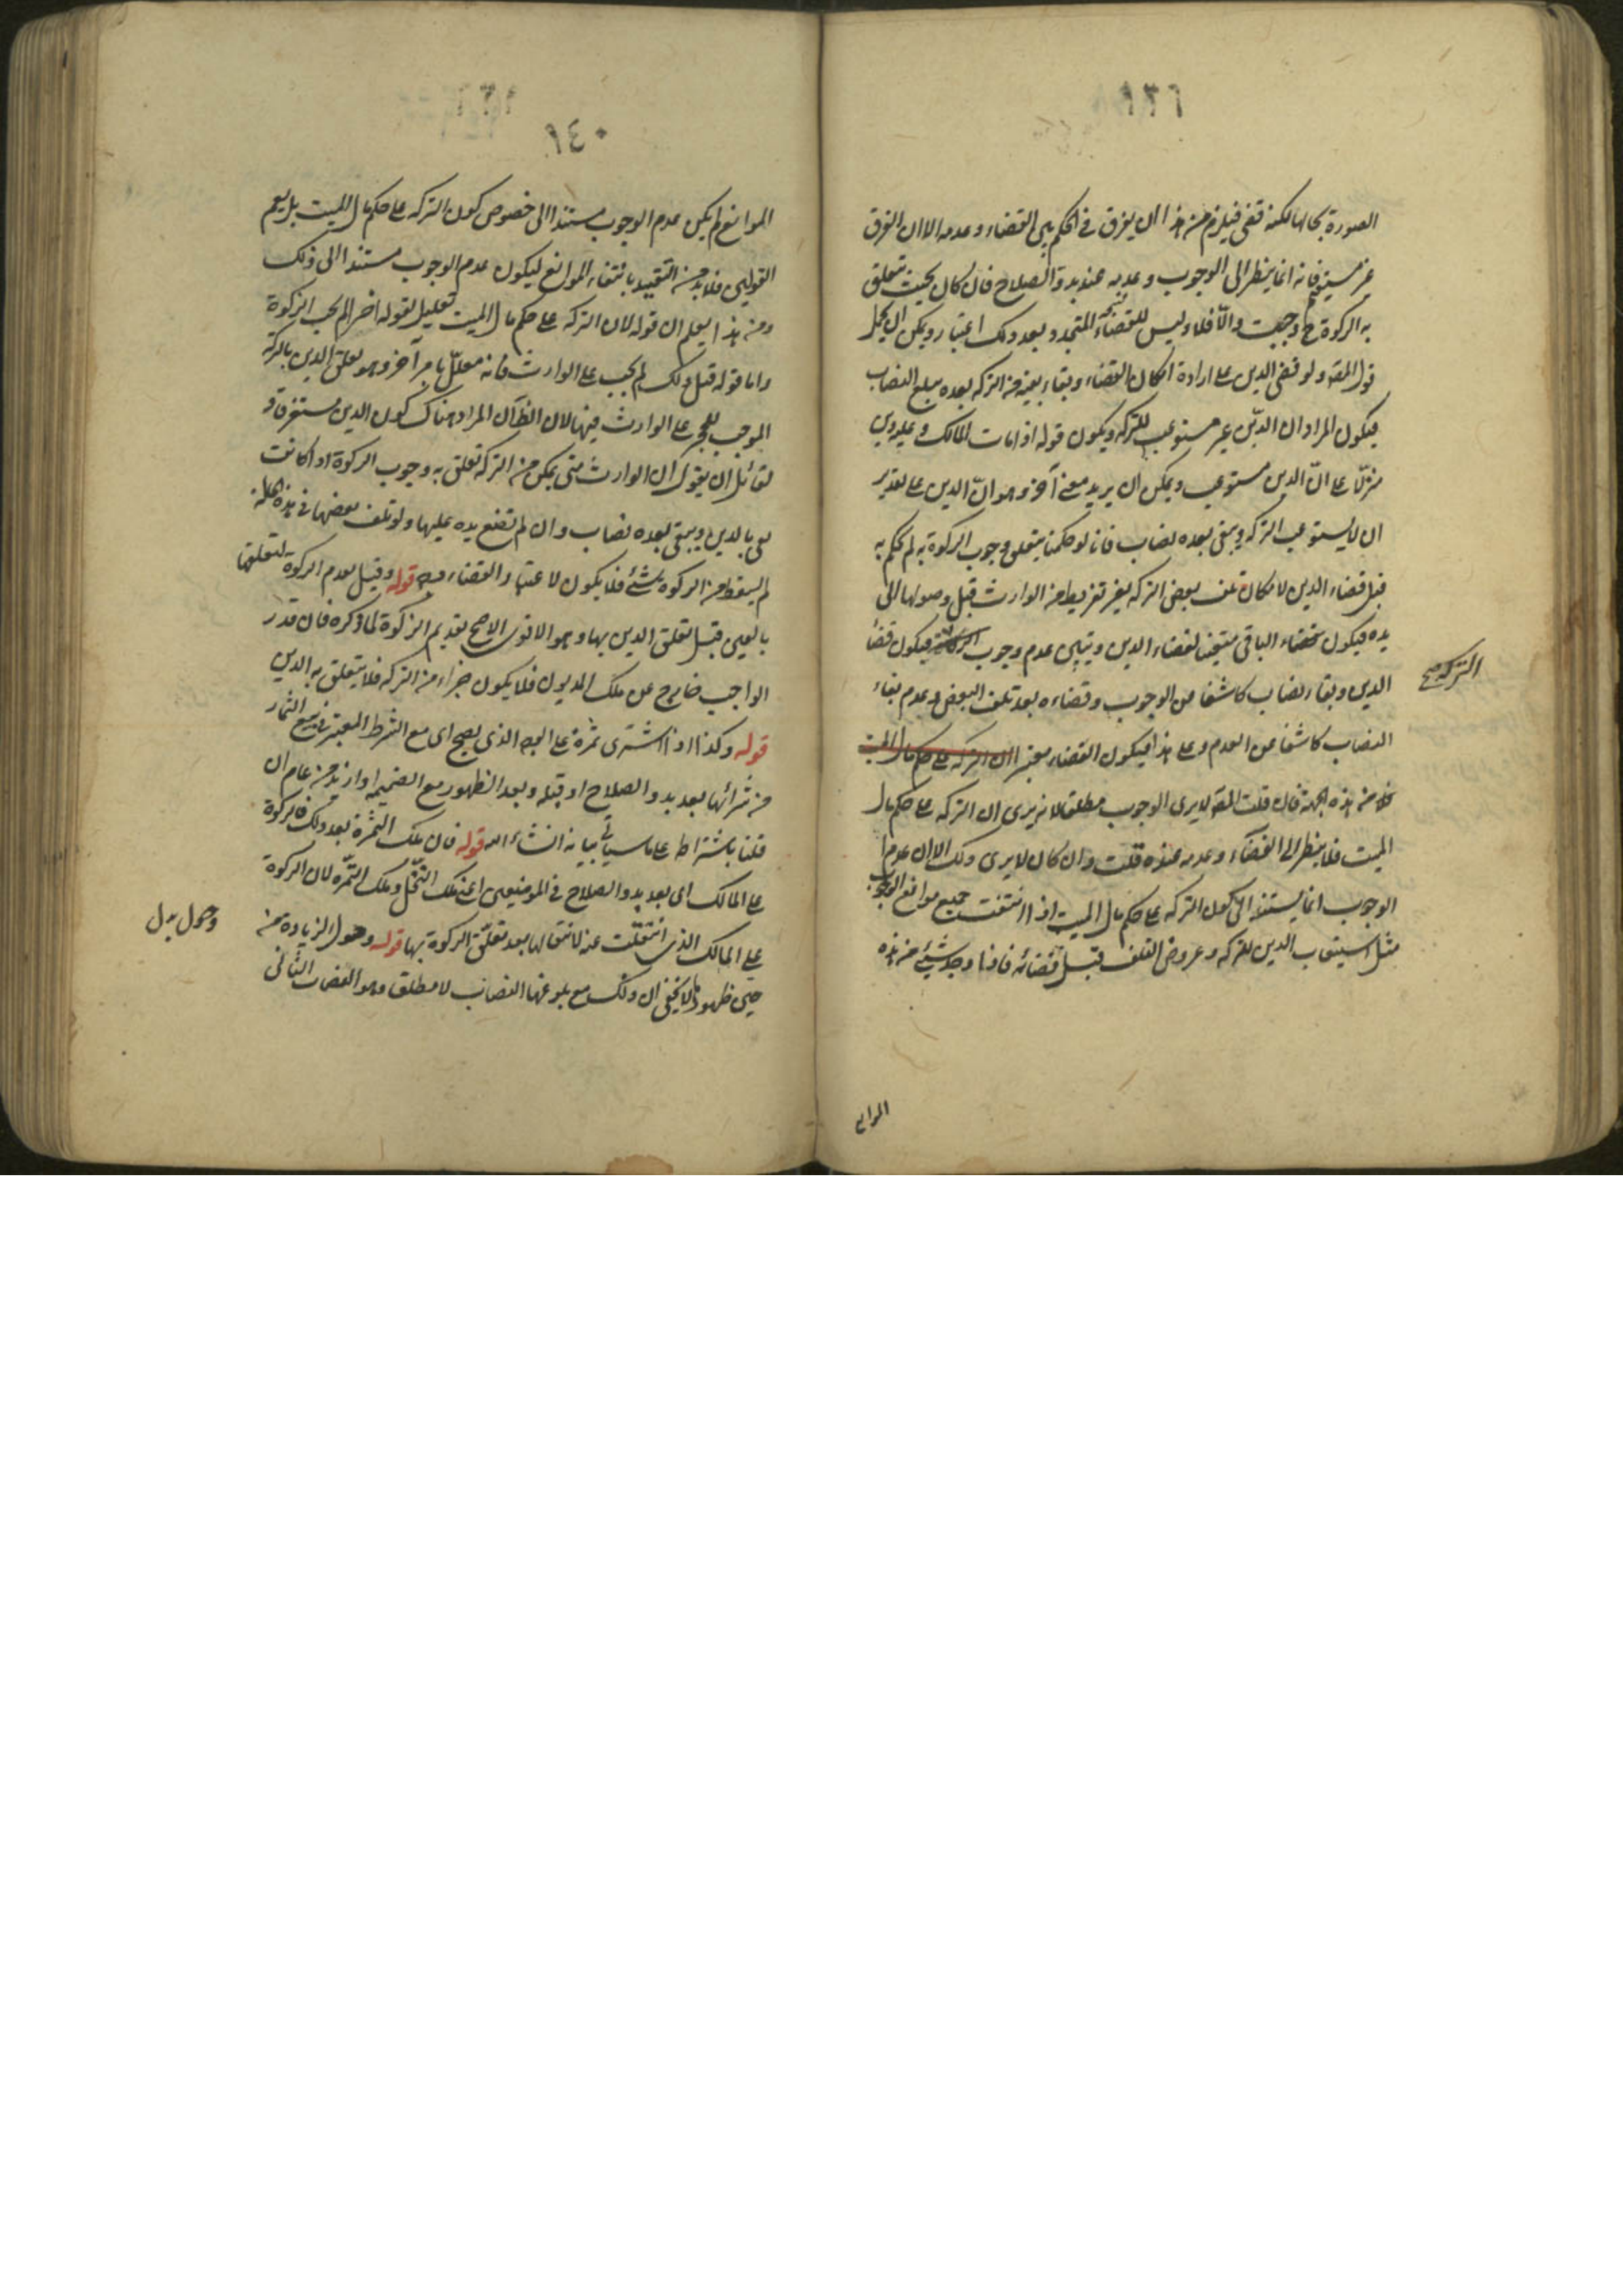 ١٣٦
الصورة بحالها لكنه قضى فيلزم من هذا ان يفرق فى الحكم بين القضاء وعدمه الا ان الفرق
غير مستقيم فانه انما ينظر الى الوجوب وعدمه عند بدو الصلاح فان كان بحيث تتعلق
به الزكوة ح وجبت والّا فلا وليس للقضاء المتجدد بعد ذلك اعتبار ويمكن ان يحمل
قول المص ولو قضى الدين على ارادة امكان القضاء وبقاء بقية من التركه بعده مبلغ النصاب
فيكون المراد ان الدين غير مستوعب للتركه ويكون قوله اذا مات المالك وعليه دين
منزلا على انّ الدين مستوعب ويمكن ان يريد معنى آخر وهو انّ الدين على تقدير
ان لا يستوعب التركه ويبقى بعده نصاب فانا لو حكمنا بتعلق وجوب الزكوة به لم نحكم به
قبل قضاء الدين لامكان تلف بعض التركه بغير تفريط من الوارث قبل وصولها الى
يده فيكون الباقى متعينا لقضاء الدين ويتبين عدم وجوب فيكون قضاء
التركه صح
الدين وبقاء نصاب كاشفا عن الوجوب وقضاءه بعد تلف البعض وعدم بقاء
النصاب كاشفا عن العدم وعلى هذا فيكون القضاء معتبرا ان التركه على حكم مال الميت
من هذه الجهة فان قلت المص لا يرى الوجوب مطلقا لانه يرى ان التركه على حكم مال
الميت فلا ينظر الى القضاء وعدمه عنده قلت وان كان لا يرى ذلك الا ان عدم
الوجوب انما يستند الى كون التركه على حكم مال الميت اذا انتفت جميع موانع الوجوب
مثل استيعاب الدين للتركه وعروض التلف قبل قضائه فاذا وجد شيئ من هذه
الموانع
١٤٠
الموانع لم يكن عدم الوجوب مستندا الى خصوص كون التركه على حكم مال الميت بل يعم
القولين فلا بد من التقييد بانتفاء الموانع ليكون عدم الوجوب مستندا الى ذلك
ومن هذا يعلم ان قوله لان التركه على حكم مال الميت تعليل لقوله اخيرا لم يجب الزكوة
واما قوله قبل ذلك لم يجب على الوارث فانه معلّل بامر آخر وهو تعلق الدين بالتركه
الموجب للحجر على الوارث فيها لان الظ ان المراد هناك كون الدين مستغرقا و
لقائل ان يقول ان الوارث متى يمكن من التركه تعلق به وجوب الزكوة اذا كانت
تفى بالدين ويبقى بعده نصاب وان لم تقع يده عليها ولو تلف بعضها فى هذه الحالة
لم يسقط من الزكوة شئ فلا يكون لاعتبار القضاء وجه قوله وقيل بعدم الزكوة لتعلقها
بالعين قبل تعلق الدين بها وهو الاقوى الاصح تقديم الزكوة لما ذكره فان قدر
الواجب خارج عن ملك المديون فلا يكون جزاء من التركه فلا يتعلق به الدين
قوله وكذا اذا اشترى ثمرة على الوجه الذى يصح اى مع الشرط المعتبر فى بيع الثمار
من شرائها بعد بدو الصلاح او قبله وبعد الظهور مع الضميمه او ازيد من عام ان
قلنا باشتراط على ما سيأتى بيانه انشاء الله قوله فان ملك الثمرة بعد ذلك فالزكوة
على المالك اى بعد بدو الصلاح فى الموضعين اعنى ملك النخل وملك الثمرة لان الزكوة
على المالك الذى انتقلت عنه لانتقالها بعد تعلق الزكوة بها قوله وحول الزيادة من
حين ظهورها لا يخفى ان ذلك مع بلوغها النصاب لا مطلق وهو النصاب الثانى